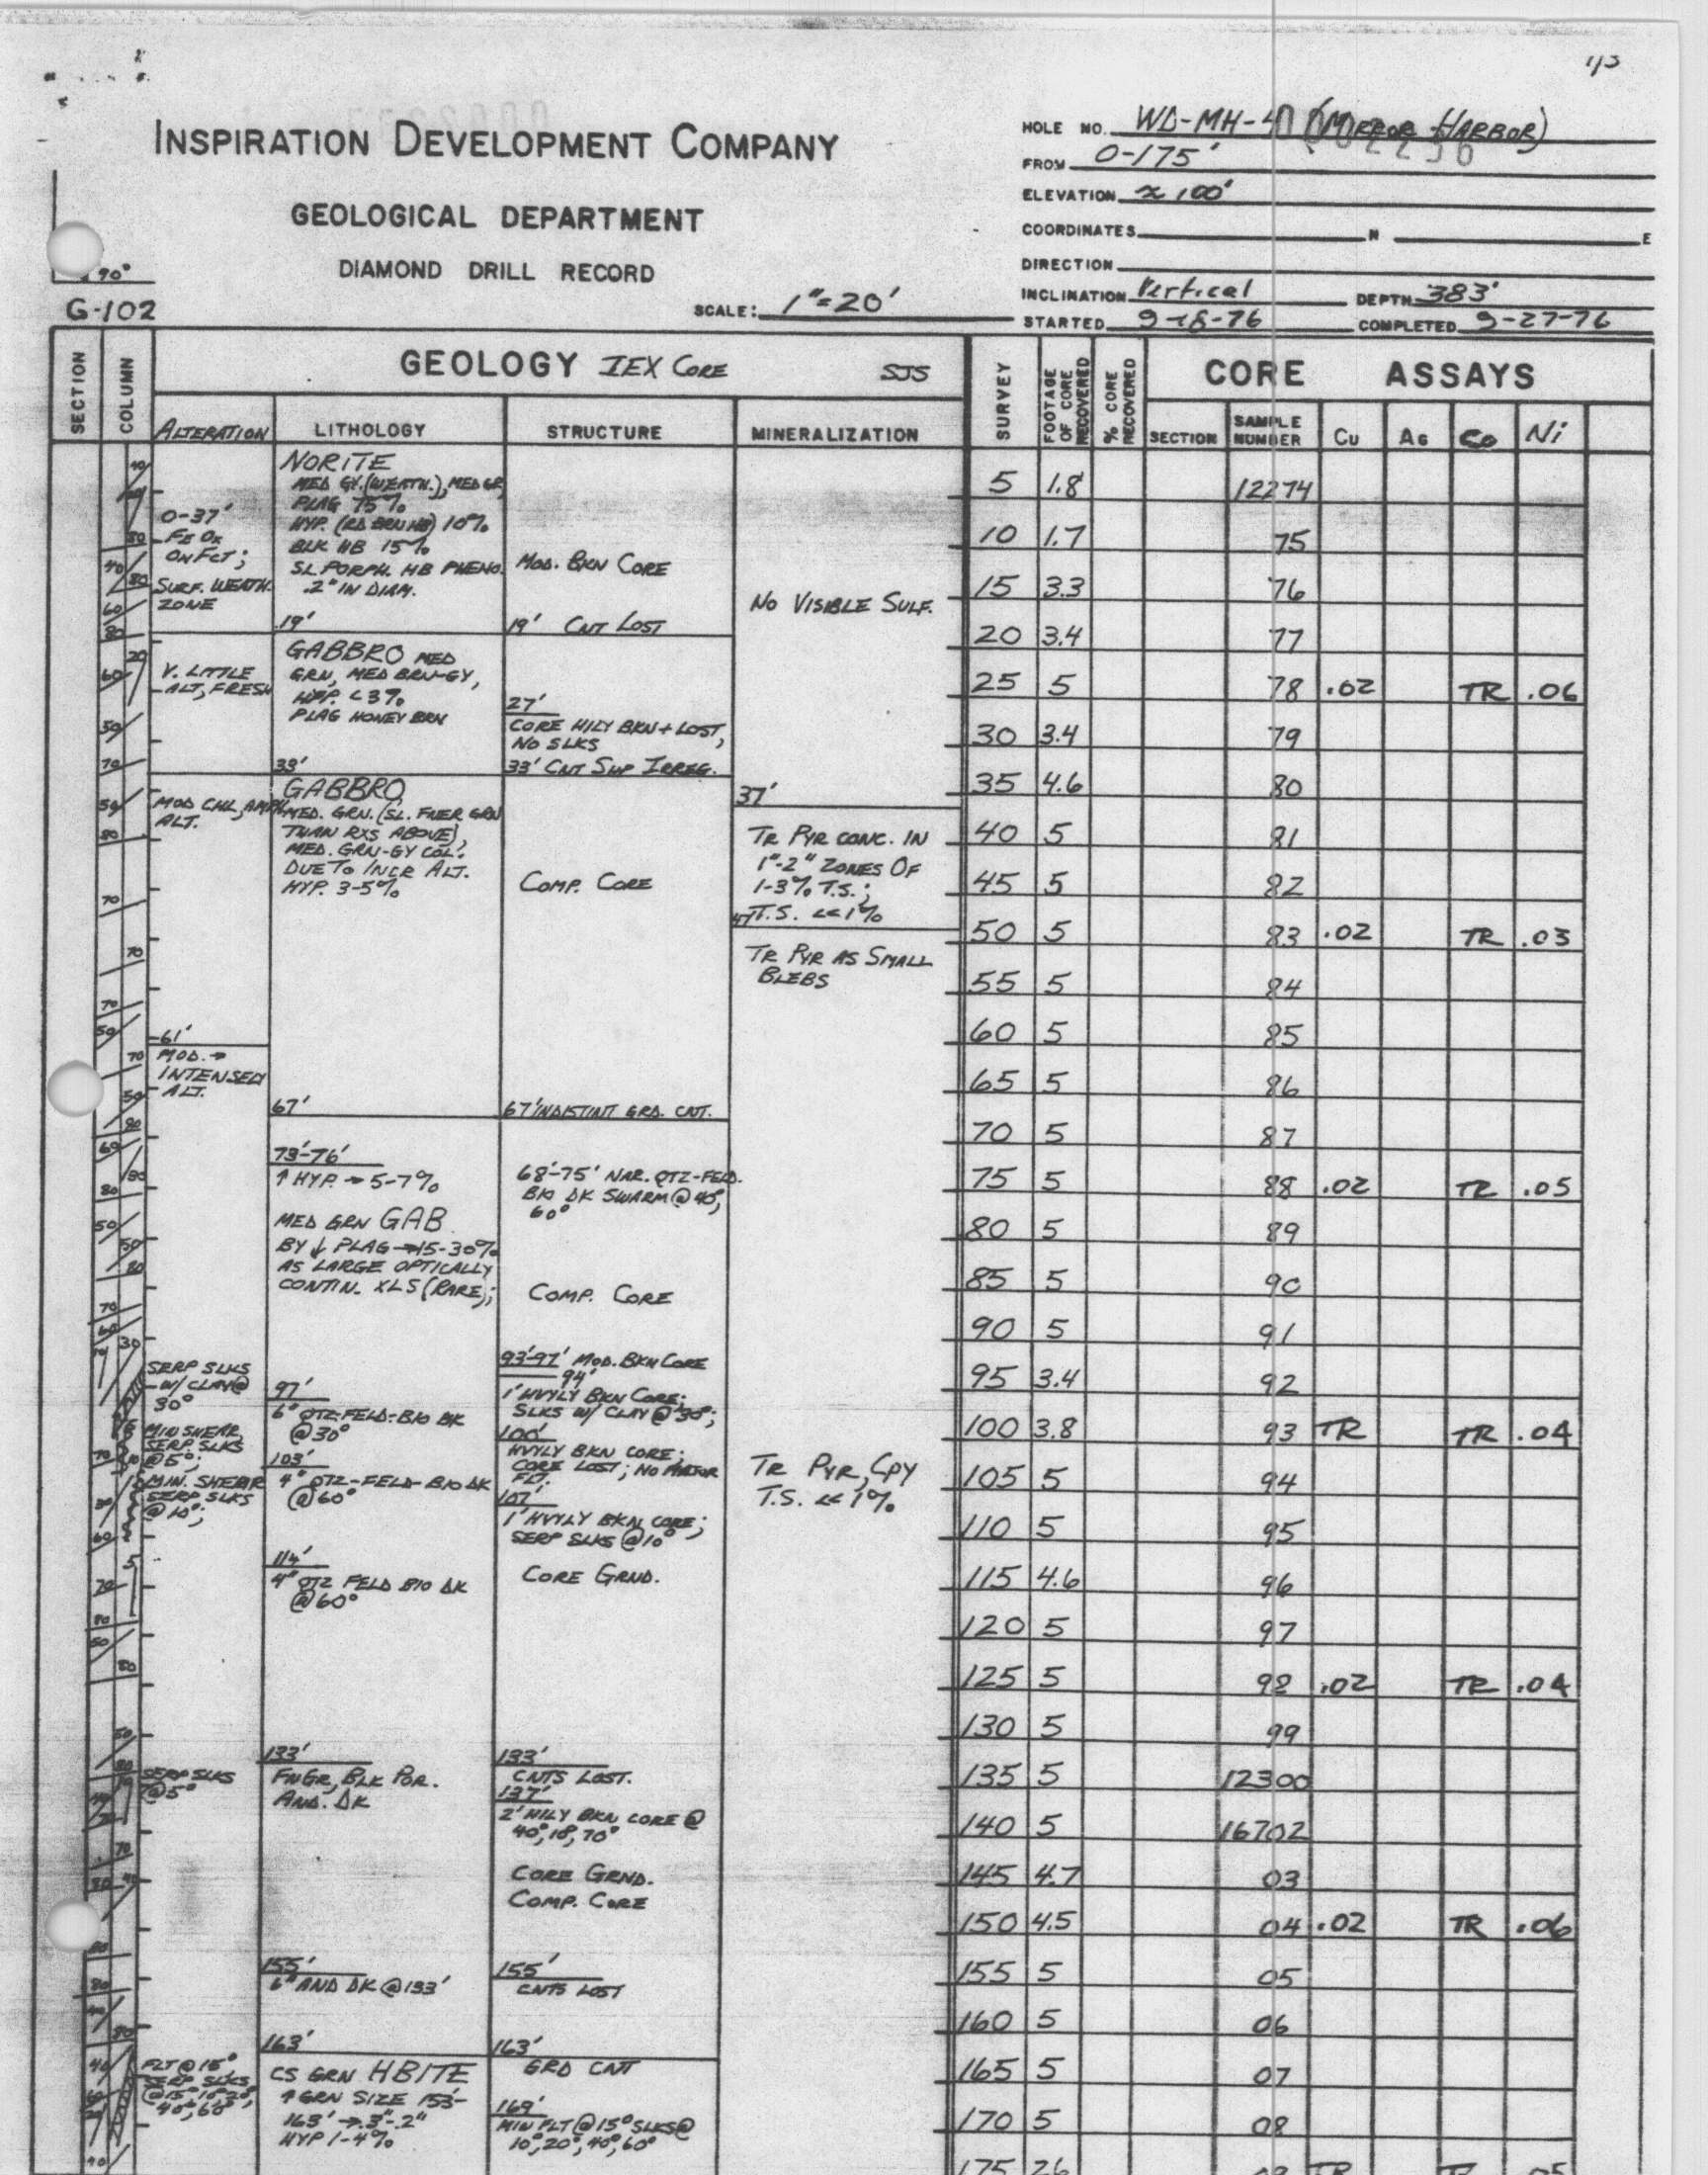 1/3
INSPIRATION DEVELOPMENT COMPANY
GEOLOGICAL DEPARTMENT
DIAMOND DRILL RECORD
90°
G-102
SCALE: 1"=20'
HOLE NO. WD-MH- (MIRROR HARBOR)
FROM 0-175'
ELEVATION ≈ 100'
COORDINATES N E
DIRECTION
INCLINATION Vertical DEPTH 383'
STARTED 9-18-76 COMPLETED 9-27-76
SECTION
COLUMN
GEOLOGY IEX CORE SJS
ALTERATION LITHOLOGY STRUCTURE MINERALIZATION
SURVEY
FOOTAGE OF CORE RECOVERED
% CORE RECOVERED
CORE ASSAYS
SECTION SAMPLE NUMBER Cu AG CO Ni
0-37'
FE OX
ON FCT;
SURF. WEATH.
ZONE
V. LITTLE
ALT, FRESH
MOD CHL, AMPH
ALT.
61'
MOD. →
INTENSELY
ALT.
SERP SLKS
W/ CLAY @
30°
MIN SHEAR,
SERP. SLKS
@ 5°;
MIN. SHEAR
SERP SLKS
@ 10°;
SERP SLKS
@ 5°
FLT @ 15°
SERP SLKS
40°, 60°
NORITE
MED GY. (WEATH.), MED GR,
PLAG 75%
HYP. (RD BRN HB) 10%
BLK HB 15%
SL PORPH. HB PHENO.
.2" IN DIAM.
19'
GABBRO MED
GRN, MED BRN-GY,
HYP. <3%
PLAG HONEY BRN
33'
GABBRO
MED. GRN. (SL. FNER GRN
THAN RXS ABOVE),
MED. GRN-GY COL.
DUE TO INCR ALT.
HYP. 3-5%
67'
73'-76'
↑ HYP. → 5-7%
MED GRN GAB
BY ↓ PLAG → 15-30%
AS LARGE OPTICALLY
CONTIN. XLS (RARE);
97'
6" QTZ-FELD-BIO DK
@ 30°
103'
4" QTZ-FELD-BIO DK
@ 60°
114'
4" QTZ FELD BIO DK
@ 60°
133'
FN GR, BLK POR.
AND. DK
155'
6" AND DK @ 133'
163'
CS GRN HBITE
↑ GRN SIZE 153'-
163' → .3"-.2"
HYP 1-4%
MOD. BKN CORE
19' CNT LOST
27'
CORE HILY BKN + LOST,
NO SLKS
33' CNT SHP IRREG.
COMP. CORE
67' INDISTINT GRD. CNT.
68'-75' NAR. QTZ-FELD.
BIO DK SWARM @ 40°,
60°
COMP. CORE
93'-97' MOD. BKN CORE
94'
1' HVYLY BKN CORE;
SLKS W/ CLAY @ 30°;
100'
HVYLY BKN CORE;
CORE LOST; NO MAJOR
FLT.
107'
1' HVYLY BKN CORE;
SERP SLKS @ 10°
CORE GRND.
133'
CNTS LOST.
137'
2' HILY BKN CORE @
40°, 10°, 70°
CORE GRND.
COMP. CORE
155'
CNTS LOST
163'
GRD CNT
169'
MIN FLT @ 15° SLKS @
10°, 20°, 40°, 60°
NO VISIBLE SULF.
37'
TR PYR CONC. IN
1"-2" ZONES OF
1-3% T.S.;
47' T.S. <<1%
TR PYR AS SMALL
BLEBS
TR PYR, CPY
T.S. <<1%
5 1.8 12274
10 1.7 75
15 3.3 76
20 3.4 77
25 5 78 .02 TR .06
30 3.4 79
35 4.6 80
40 5 81
45 5 82
50 5 83 .02 TR .03
55 5 84
60 5 85
65 5 86
70 5 87
75 5 88 .02 TR .05
80 5 89
85 5 90
90 5 91
95 3.4 92
100 3.8 93 TR TR .04
105 5 94
110 5 95
115 4.6 96
120 5 97
125 5 98 .02 TR .04
130 5 99
135 5 12300
140 5 16702
145 4.7 03
150 4.5 04 .02 TR .06
155 5 05
160 5 06
165 5 07
170 5 08
175 2.6